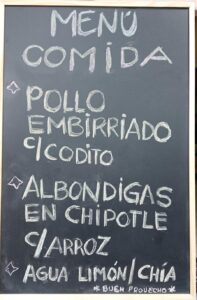 MENÚ
COMIDA
POLLO
EMBIRRIADO
C/CODITO
ALBONDIGAS
EN CHIPOTLE
C/ARROZ
AGUA LIMÓN/CHÍA
*BUEN PROVECHO*